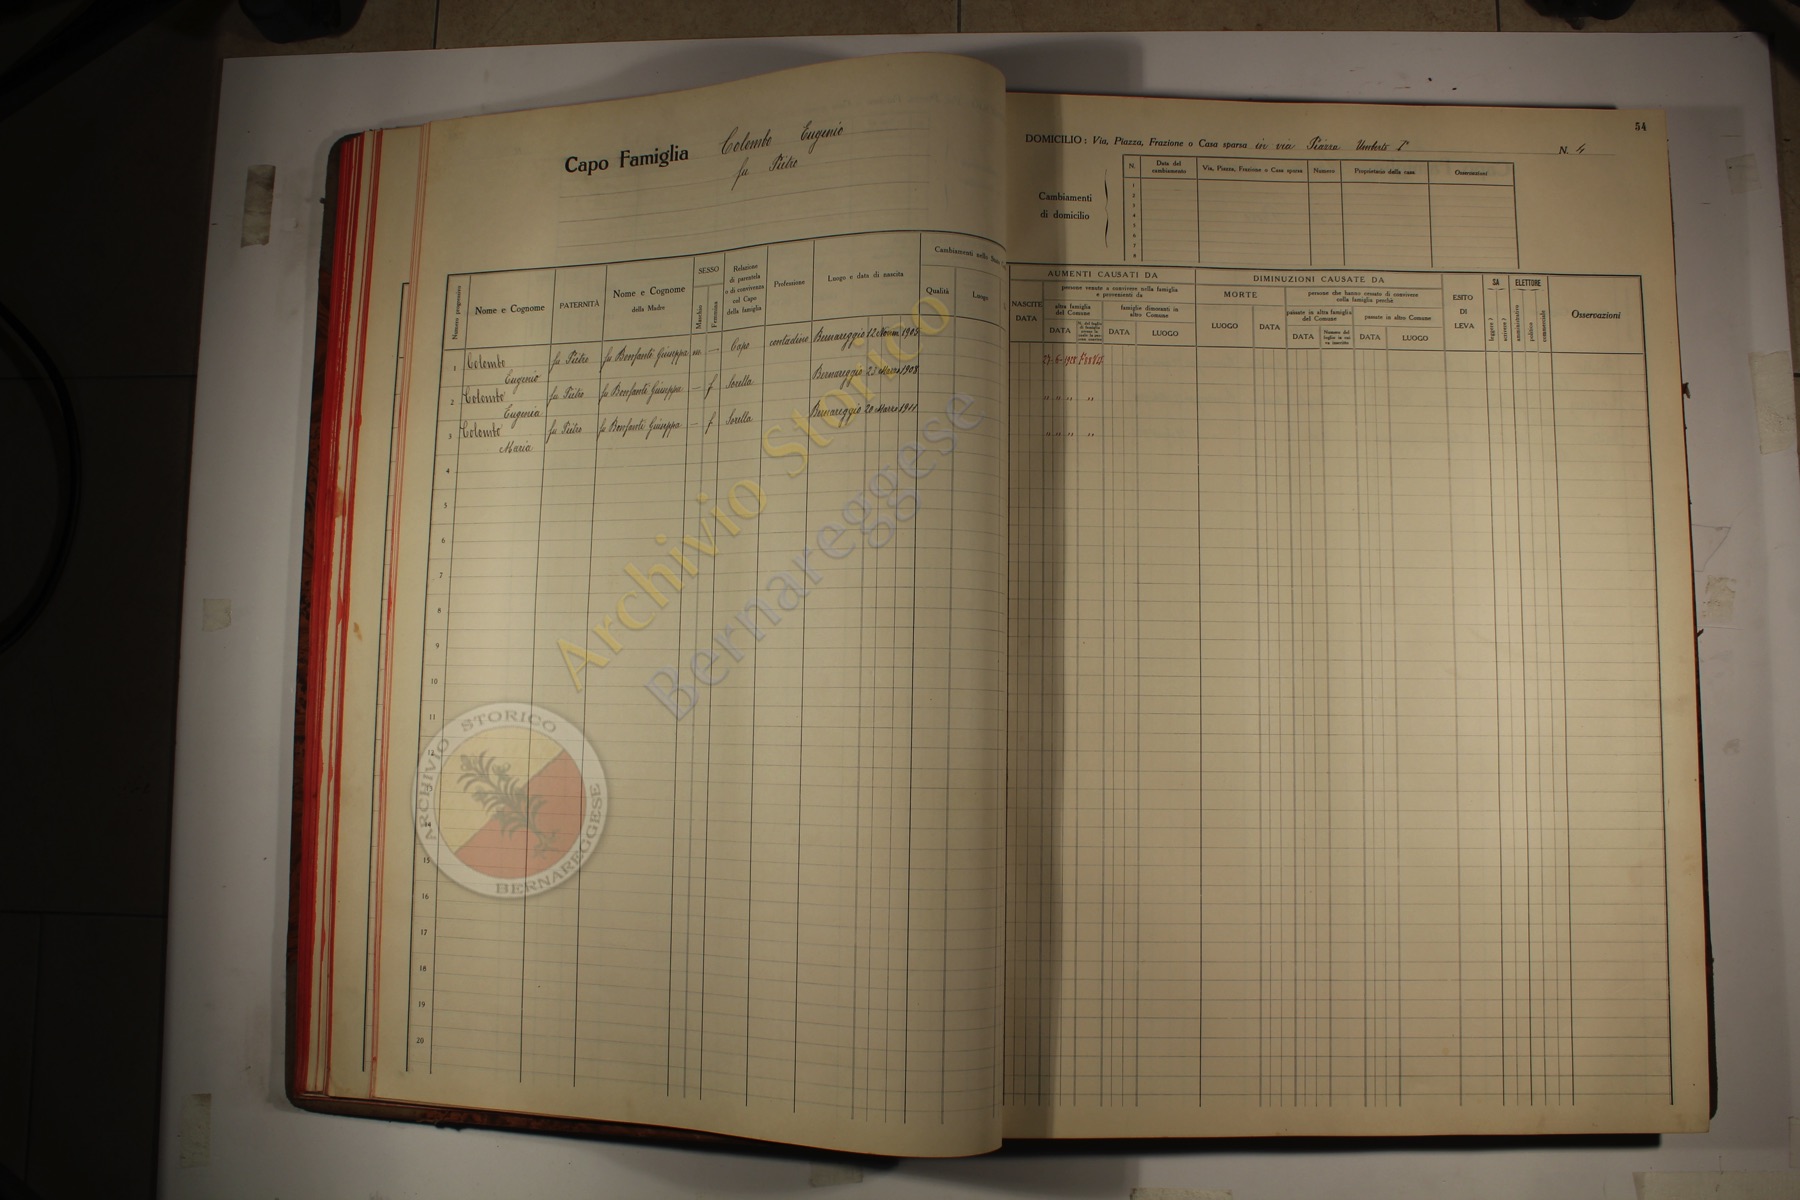 Capo Famiglia Colombo Eugenio
fu Pietro
54
DOMICILIO: Via, Piazza, Frazione o Casa sparsa in via Piazza Umberto I° N. 4
Cambiamenti
di domicilio
N. Data del cambiamento Via, Piazza, Frazione o Casa sparsa Numero Proprietario della casa Osservazioni
1
2
3
4
5
6
7
8
Numero progressivo
Nome e Cognome
PATERNITÀ
Nome e Cognome
della Madre
SESSO
Maschio
Femmina
Relazione
di parentela
o di convivenza
col Capo
della famiglia
Professione
Luogo e data di nascita
Cambiamenti nello
Qualità
Luogo
NASCITE
DATA
AUMENTI CAUSATI DA
persone venute a convivere nella famiglia
e provenienti da
altra famiglia
del Comune
DATA
famiglie dimoranti in
altro Comune
DATA LUOGO
DIMINUZIONI CAUSATE DA
MORTE
LUOGO DATA
persone che hanno cessato di convivere
nella famiglia perchè
passate in altra famiglia
del Comune
DATA
passate in altro Comune
DATA LUOGO
ESITO
DI
LEVA
SA
leggere?
scrivere?
ELETTORE
amministrativo
politico
commerciale
Osservazioni
1 Colombo fu Pietro fu Bonfanti Giuseppa m — Capo contadino Bernareggio 12 Novem 1905
Eugenio
2 Colombo fu Pietro fu Bonfanti Giuseppa — f Sorella Bernareggio 23 Marzo 1908
Eugenia
3 Colombo fu Pietro fu Bonfanti Giuseppa — f Sorella Bernareggio 20 Marzo 1911
Maria
" " " "
" " " "
4
5
6
7
8
9
10
11
12
13
14
15
16
17
18
19
20
Archivio Storico
Bernareggese
ARCHIVIO STORICO
BERNAREGGESE